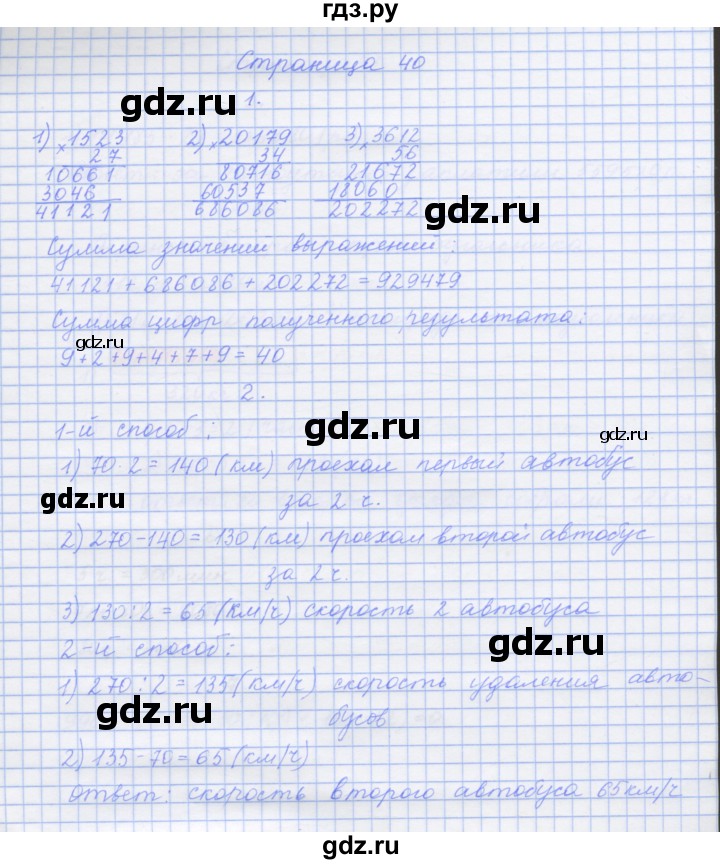 гдз.ру
Страница 40
gdz.ru
1.
1) × 1523 2) × 20179 3) × 3612
27 34 56
10661 80716 21672
3046 60537 18060
41121 686086 202272
gdz.ru
Сумма значений выражений:
41121 + 686086 + 202272 = 929479
Сумма цифр полученного результата:
gdz.ru
9+2+9+4+7+9 = 40
2.
gdz.ru
1-й способ:
gdz.ru
1) 70·2 = 140 (км) проехал первый автобус
gdz.ru
за 2 ч.
2) 270-140 = 130 (км) проехал второй автобус
за 2ч.
3) 130:2 = 65 (км/ч) скорость 2 автобуса
gdz.ru
2-й способ:
1) 270:2 = 135 (км/ч) скорость удаления авто-
gdz.ru
бусов
2) 135-70 = 65 (км/ч)
Ответ: скорость второго автобуса 65км/ч
gdz.ru